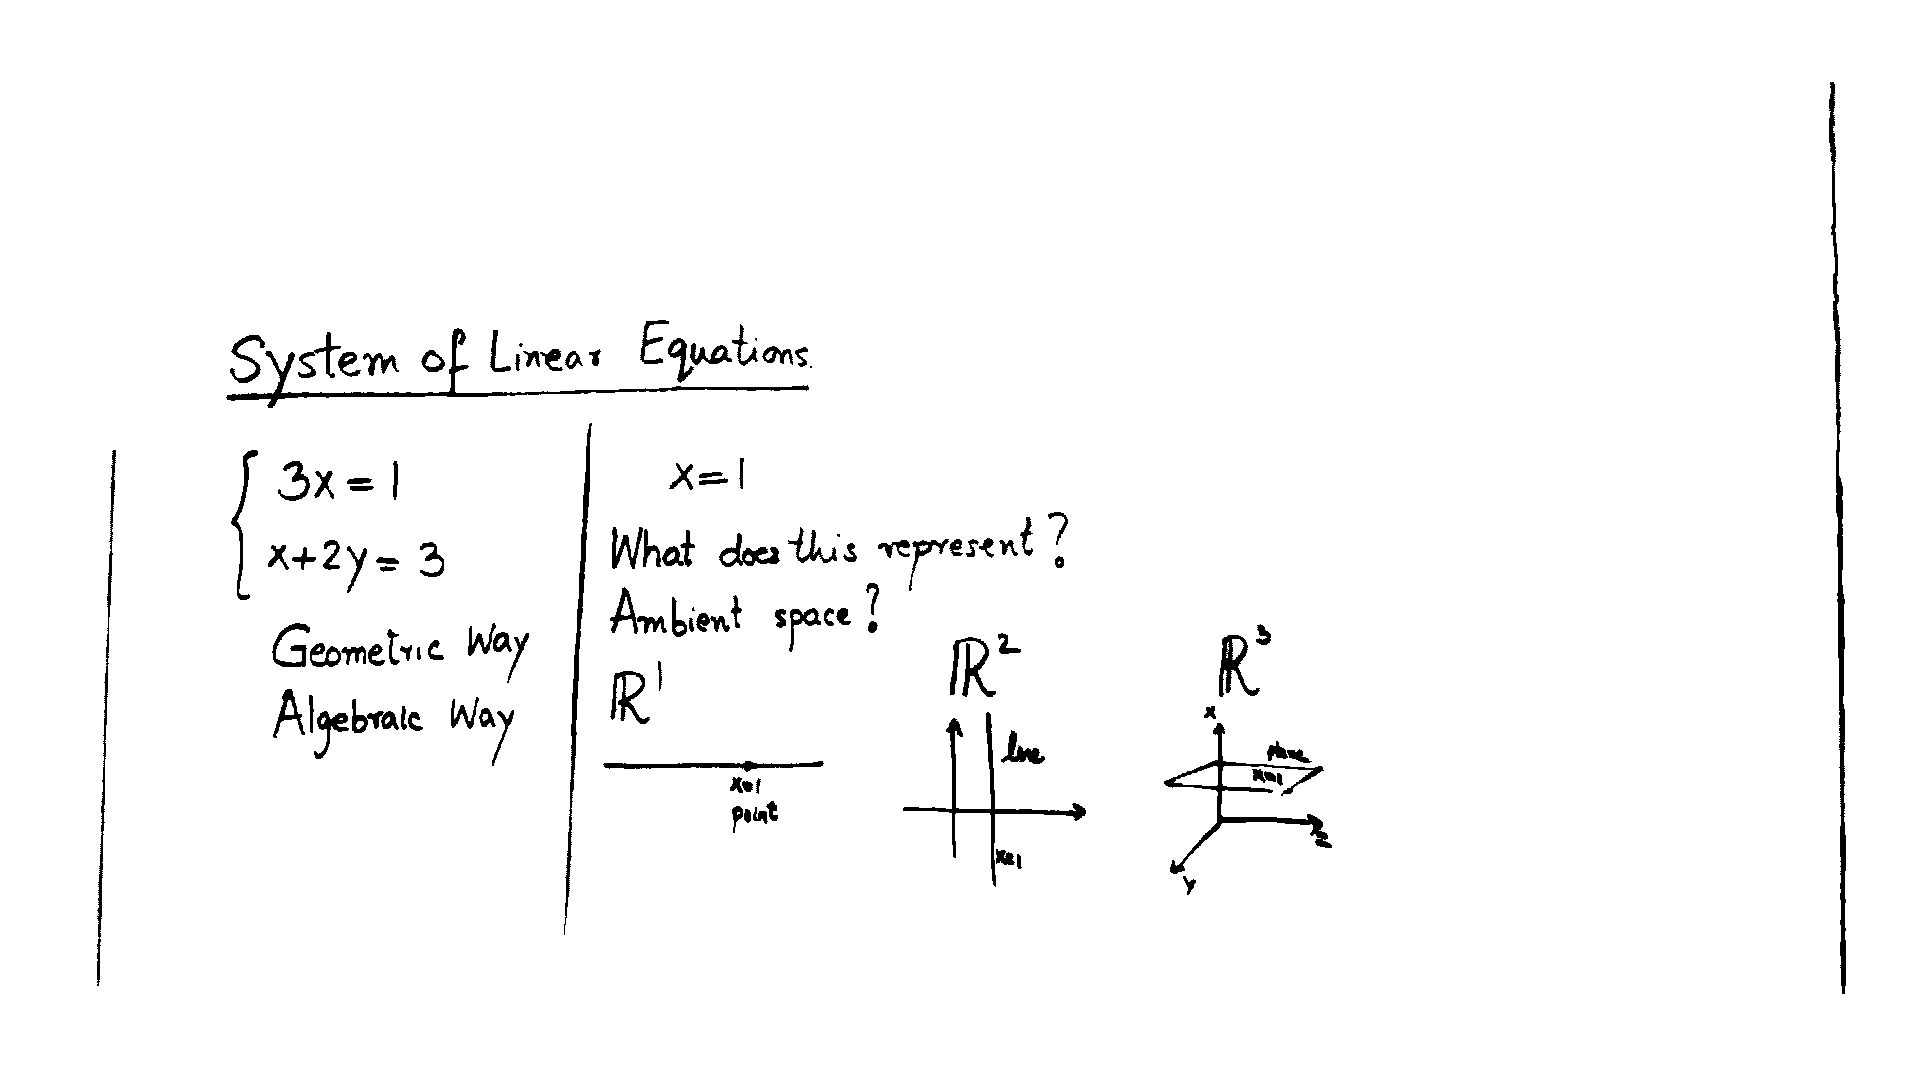 System of Linear Equations
3x = 1
x+2y = 3
Geometric Way
Algebraic Way
x=1
What does this represent?
Ambient space?
ℝ¹
x=1
point
ℝ²
line
x=1
ℝ³
x
plane
x=1
y